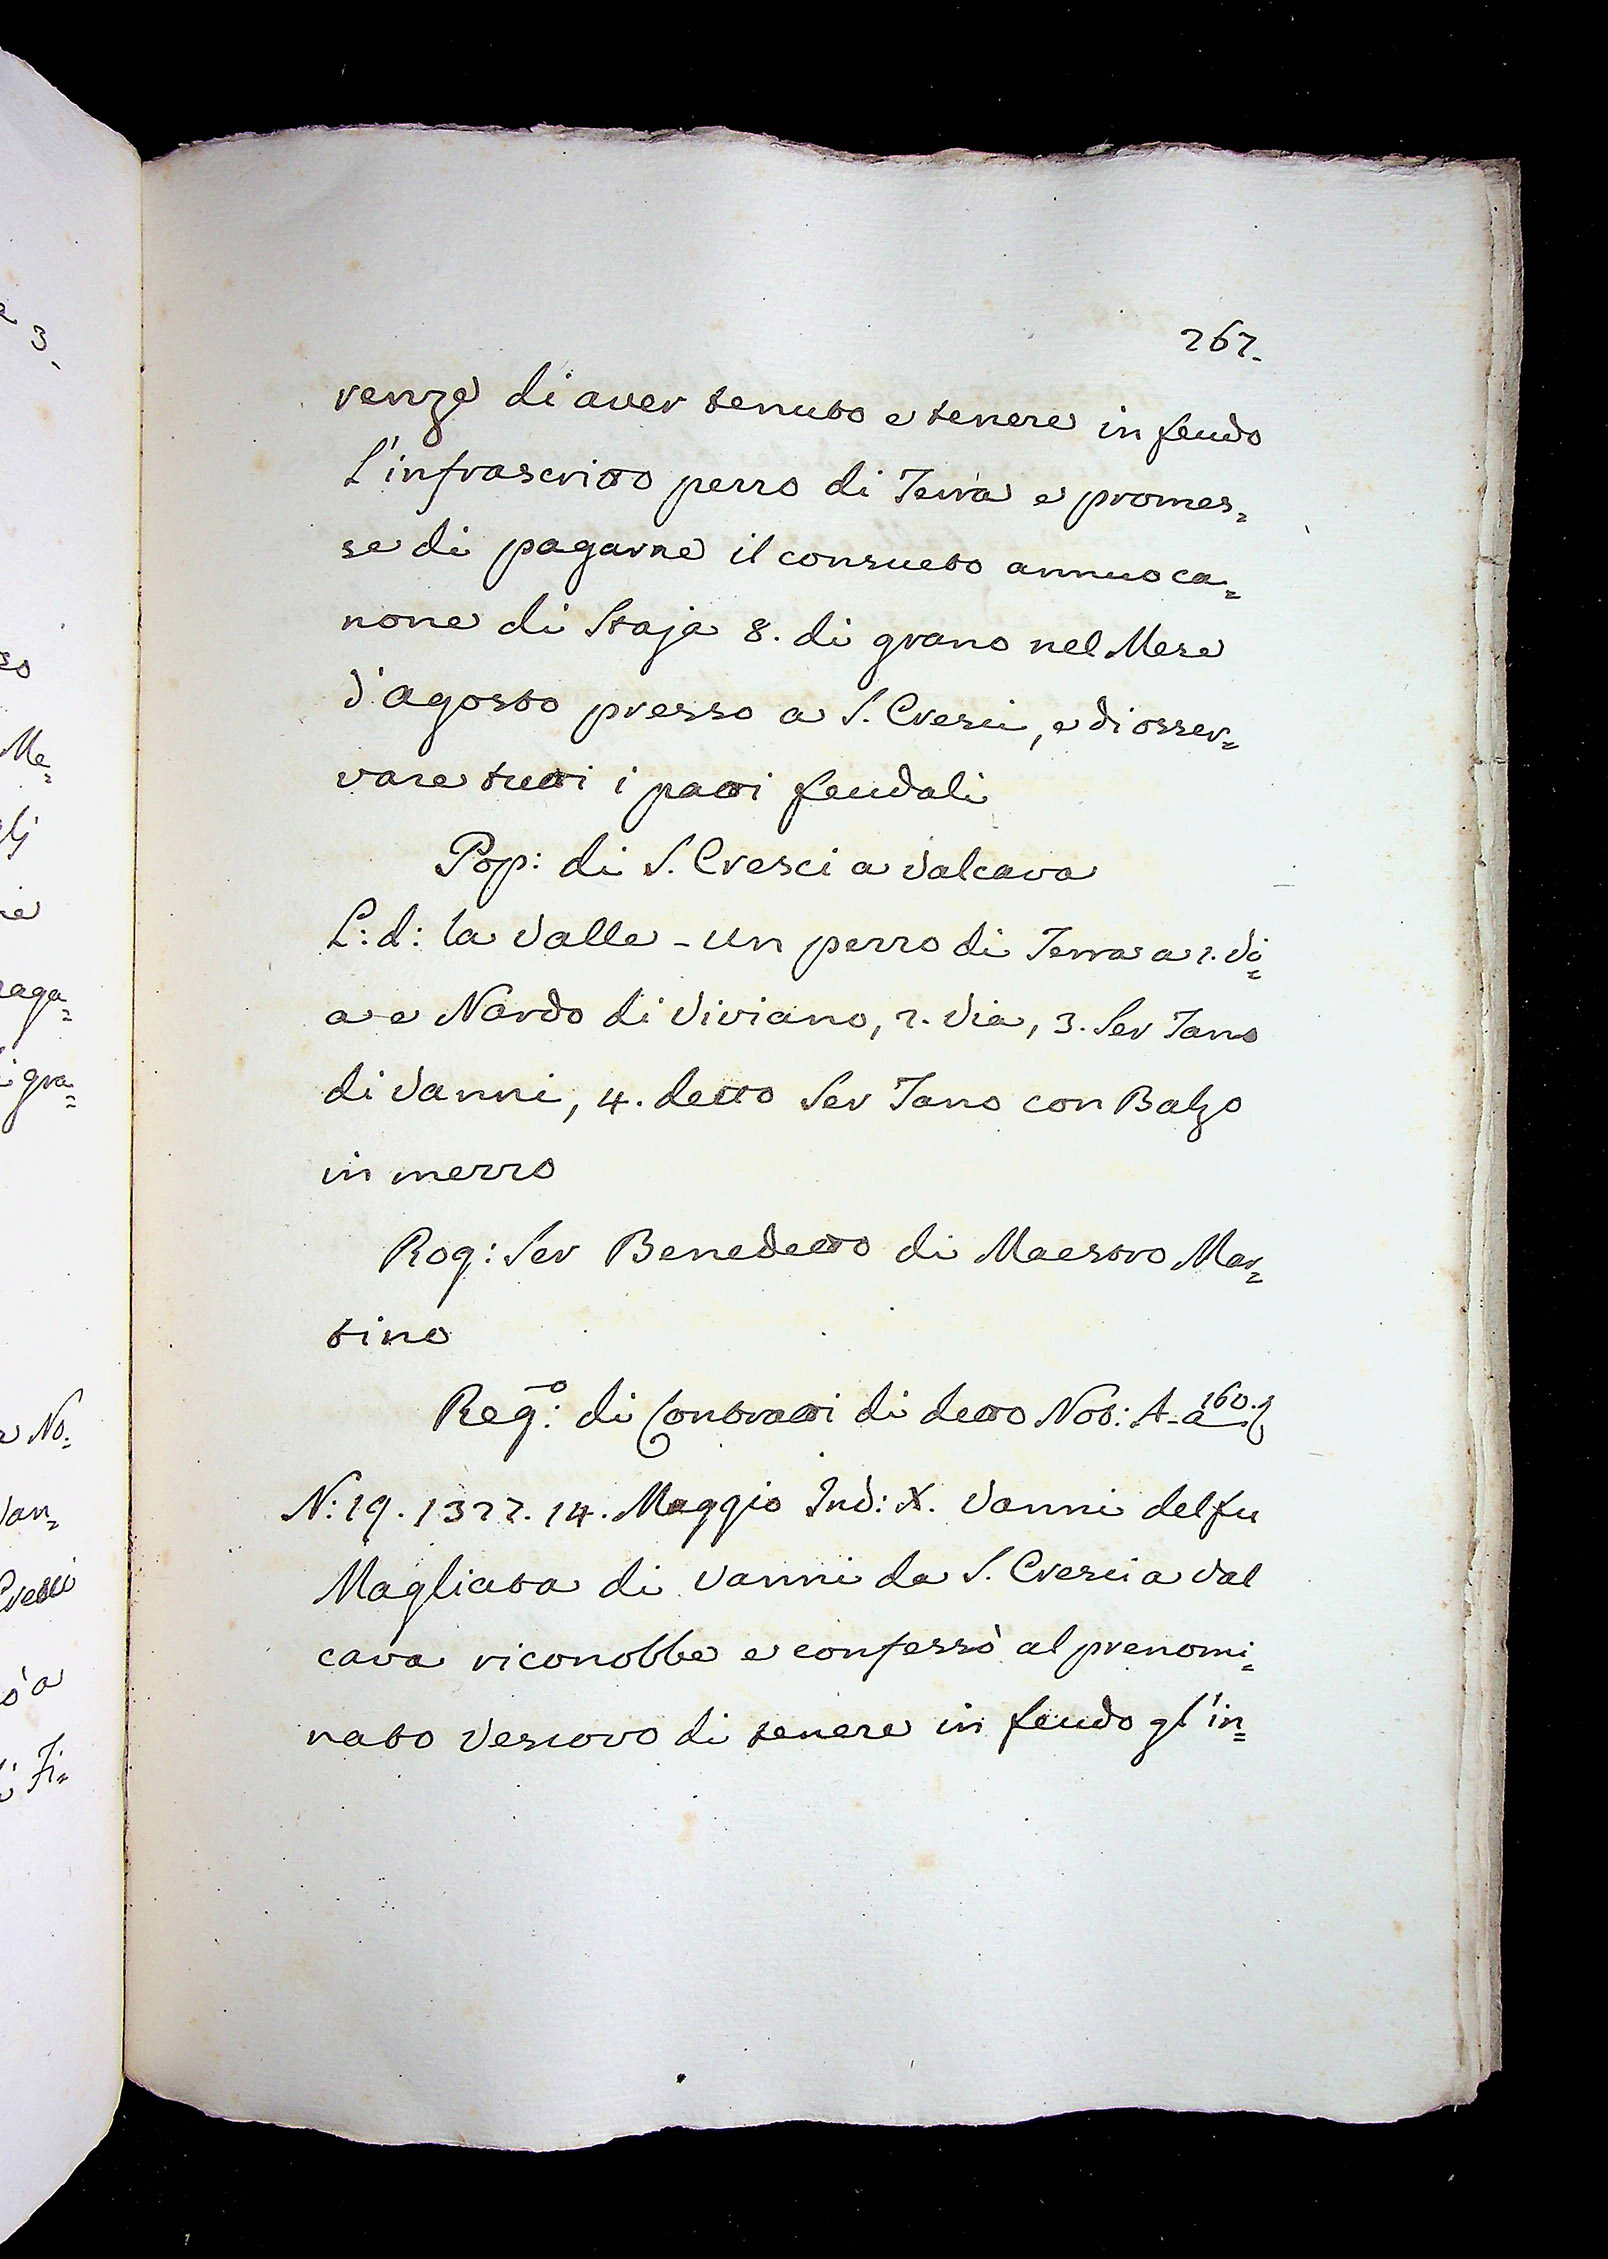 267.
renze di aver tenuto e tenere in feudo
l'infrascritto pezzo di Terra e promes=
se di pagarne il consueto annuo ca=
none di Staja 8. di grano nel Mese
d'agosto presso a S. Cresci, e di osser=
vare tutti i patti feudali
Pop: di S. Cresci a Valcava
L: d: la Valle - un pezzo di Terra a 1. Vi=
a e Nardo di Viviano, 2. Via, 3. Ser Tano
di Vanni, 4. detto Ser Tano con Balzo
in mezzo
Rog: Ser Benedetto di Maestro Mar=
tino
Reg:o di Contratti di detto Not: A - a 160.
N: 19. 1327. 14. Maggio Ind: X. Vanni del fu
Magliata di Vanni da S. Cresci a Val
cava riconobbe e confessò al prenomi=
nato Vescovo di tenere in feudo gl'in=